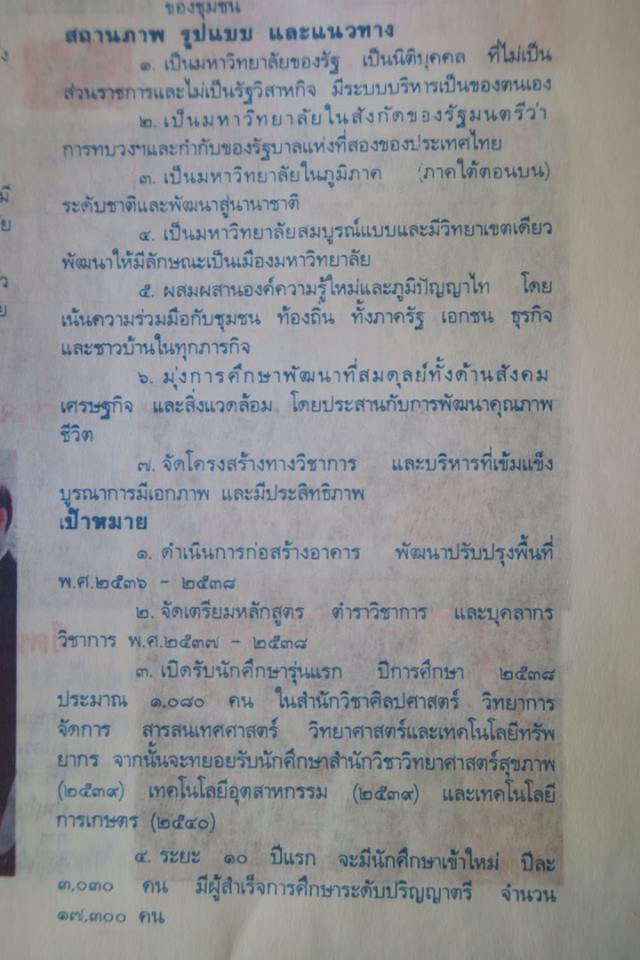 ของชุมชน
สถานภาพ รูปแบบ และแนวทาง
๑. เป็นมหาวิทยาลัยของรัฐ เป็นนิติบุคคล ที่ไม่เป็น
ส่วนราชการและไม่เป็นรัฐวิสาหกิจ มีระบบบริหารเป็นของตนเอง
๒. เป็นมหาวิทยาลัยในสังกัดของรัฐมนตรีว่า
การทบวงฯและกำกับของรัฐบาลแห่งที่สองของประเทศไทย
๓. เป็นมหาวิทยาลัยในภูมิภาค (ภาคใต้ตอนบน)
ระดับชาติและพัฒนาสู่นานาชาติ
๔. เป็นมหาวิทยาลัยสมบูรณ์แบบและมีวิทยาเขตเดียว
พัฒนาให้มีลักษณะเป็นเมืองมหาวิทยาลัย
๕. ผสมผสานองค์ความรู้ใหม่และภูมิปัญญาไท โดย
เน้นความร่วมมือกับชุมชน ท้องถิ่น ทั้งภาครัฐ เอกชน ธุรกิจ
และชาวบ้านในทุกภารกิจ
๖. มุ่งการศึกษาพัฒนาที่สมดุลย์ทั้งด้านสังคม
เศรษฐกิจ และสิ่งแวดล้อม โดยประสานกับการพัฒนาคุณภาพ
ชีวิต
๗. จัดโครงสร้างทางวิชาการ และบริหารที่เข้มแข็ง
บูรณาการมีเอกภาพ และมีประสิทธิภาพ
เป้าหมาย
๑. ดำเนินการก่อสร้างอาคาร พัฒนาปรับปรุงพื้นที่
พ.ศ.๒๕๓๖ - ๒๕๓๘
๒. จัดเตรียมหลักสูตร ตำราวิชาการ และบุคลากร
วิชาการ พ.ศ.๒๕๓๗ - ๒๕๓๘
๓. เปิดรับนักศึกษารุ่นแรก ปีการศึกษา ๒๕๓๘
ประมาณ ๑,๐๘๐ คน ในสำนักวิชาศิลปศาสตร์ วิทยาการ
จัดการ สารสนเทศศาสตร์ วิทยาศาสตร์และเทคโนโลยีทรัพ
ยากร จากนั้นจะทยอยรับนักศึกษาสำนักวิชาวิทยาศาสตร์สุขภาพ
(๒๕๓๙) เทคโนโลยีอุตสาหกรรม (๒๕๓๙) และเทคโนโลยี
การเกษตร (๒๕๔๐)
๔. ระยะ ๑๐ ปีแรก จะมีนักศึกษาเข้าใหม่ ปีละ
๓,๐๓๐ คน มีผู้สำเร็จการศึกษาระดับปริญญาตรี จำนวน
๑๗,๓๐๐ คน